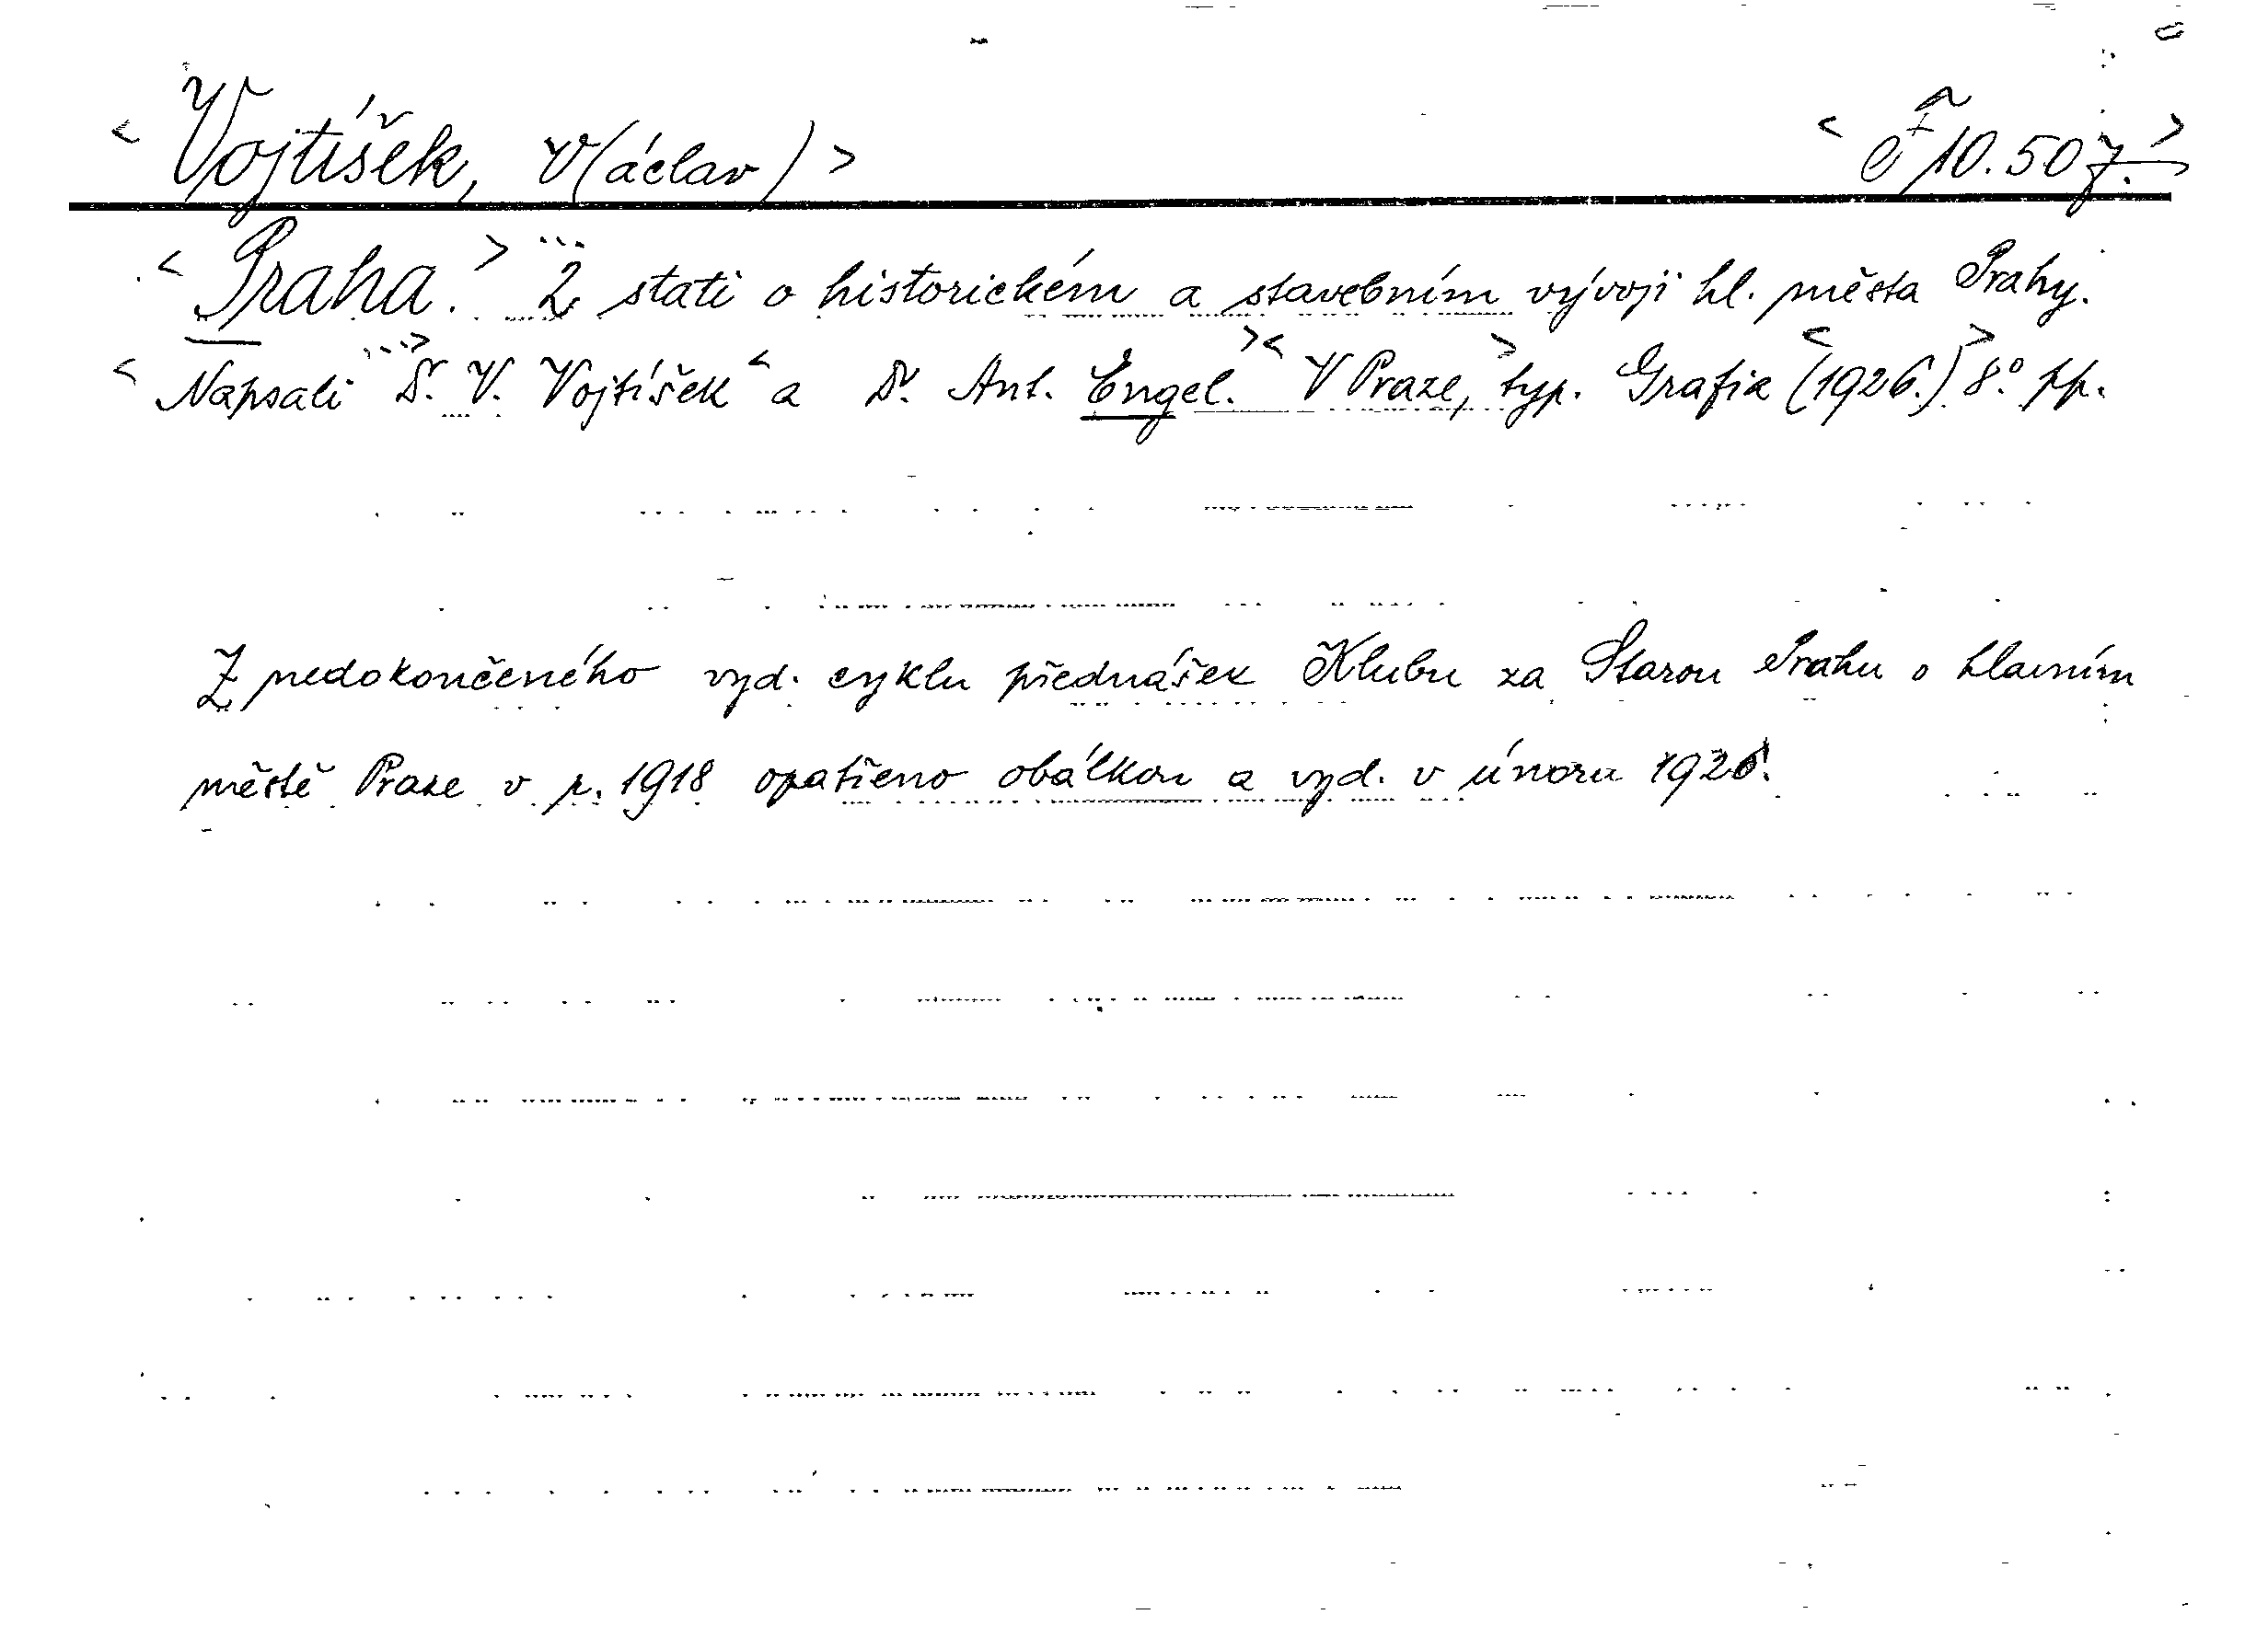 < Vojtíšek, V(áclav) > < F 10.507. >
< Praha. > 2 stati o historickém a stavebním vývoji hl. města Prahy.
< Napsali > Dr. V. Vojtíšek < a Dr. Ant. Engel. > < V Praze, > typ. Grafia < (1926.) > 8° pp.
Z nedokončeného vyd. cyklu přednášek Klubu za Starou Prahu o hlavním
městě Praze v r. 1918 opatřeno obálkou a vyd. v únoru 1926.